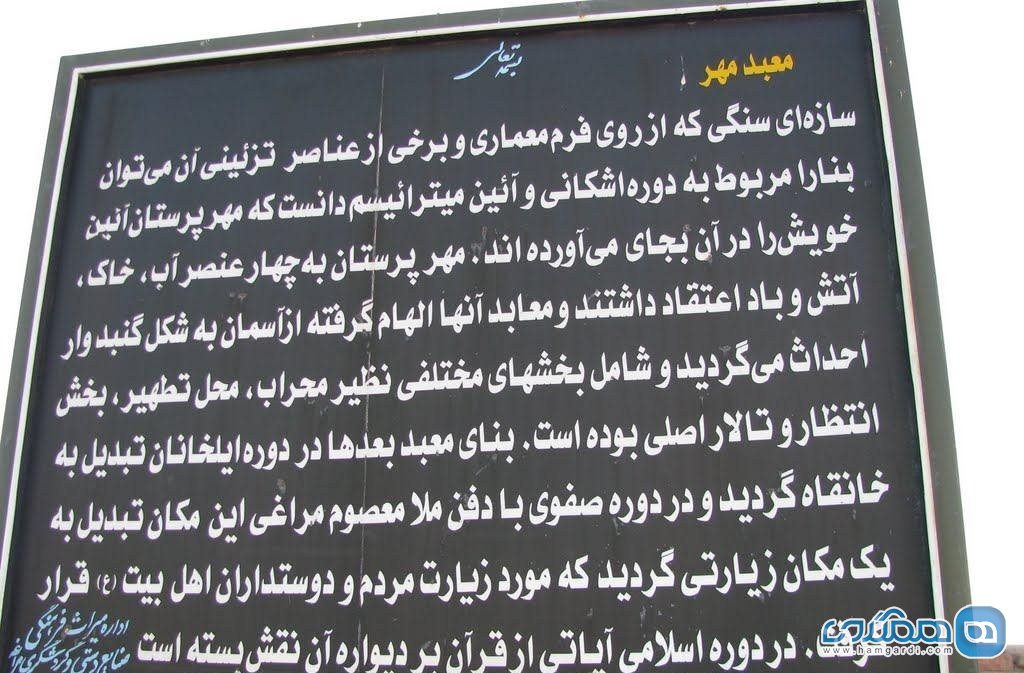 بسمه تعالی
معبد مهر
سازه‌ای سنگی که از روی فرم معماری و برخی از عناصر تزئینی آن می‌توان
بنا را مربوط به دوره اشکانی و آئین میترائیسم دانست که مهر پرستان آئین
خویش را در آن بجای می‌آورده اند. مهر پرستان به چهار عنصر آب، خاک،
آتش و باد اعتقاد داشتند و معابد آنها الهام گرفته از آسمان به شکل گنبد وار
احداث می‌گردید و شامل بخشهای مختلفی نظیر محراب، محل تطهیر، بخش
انتظار و تالار اصلی بوده است. بنای معبد بعدها در دوره ایلخانان تبدیل به
خانقاه گردید و در دوره صفوی با دفن ملا معصوم مراغی این مکان تبدیل به
یک مکان زیارتی گردید که مورد زیارت مردم و دوستداران اهل بیت (ع) قرار
در دوره اسلامی آیاتی از قرآن بر دیواره آن نقش بسته است
اداره میراث فرهنگی
صنایع دستی و گردشگری
همگردی
www.hamgardi.com